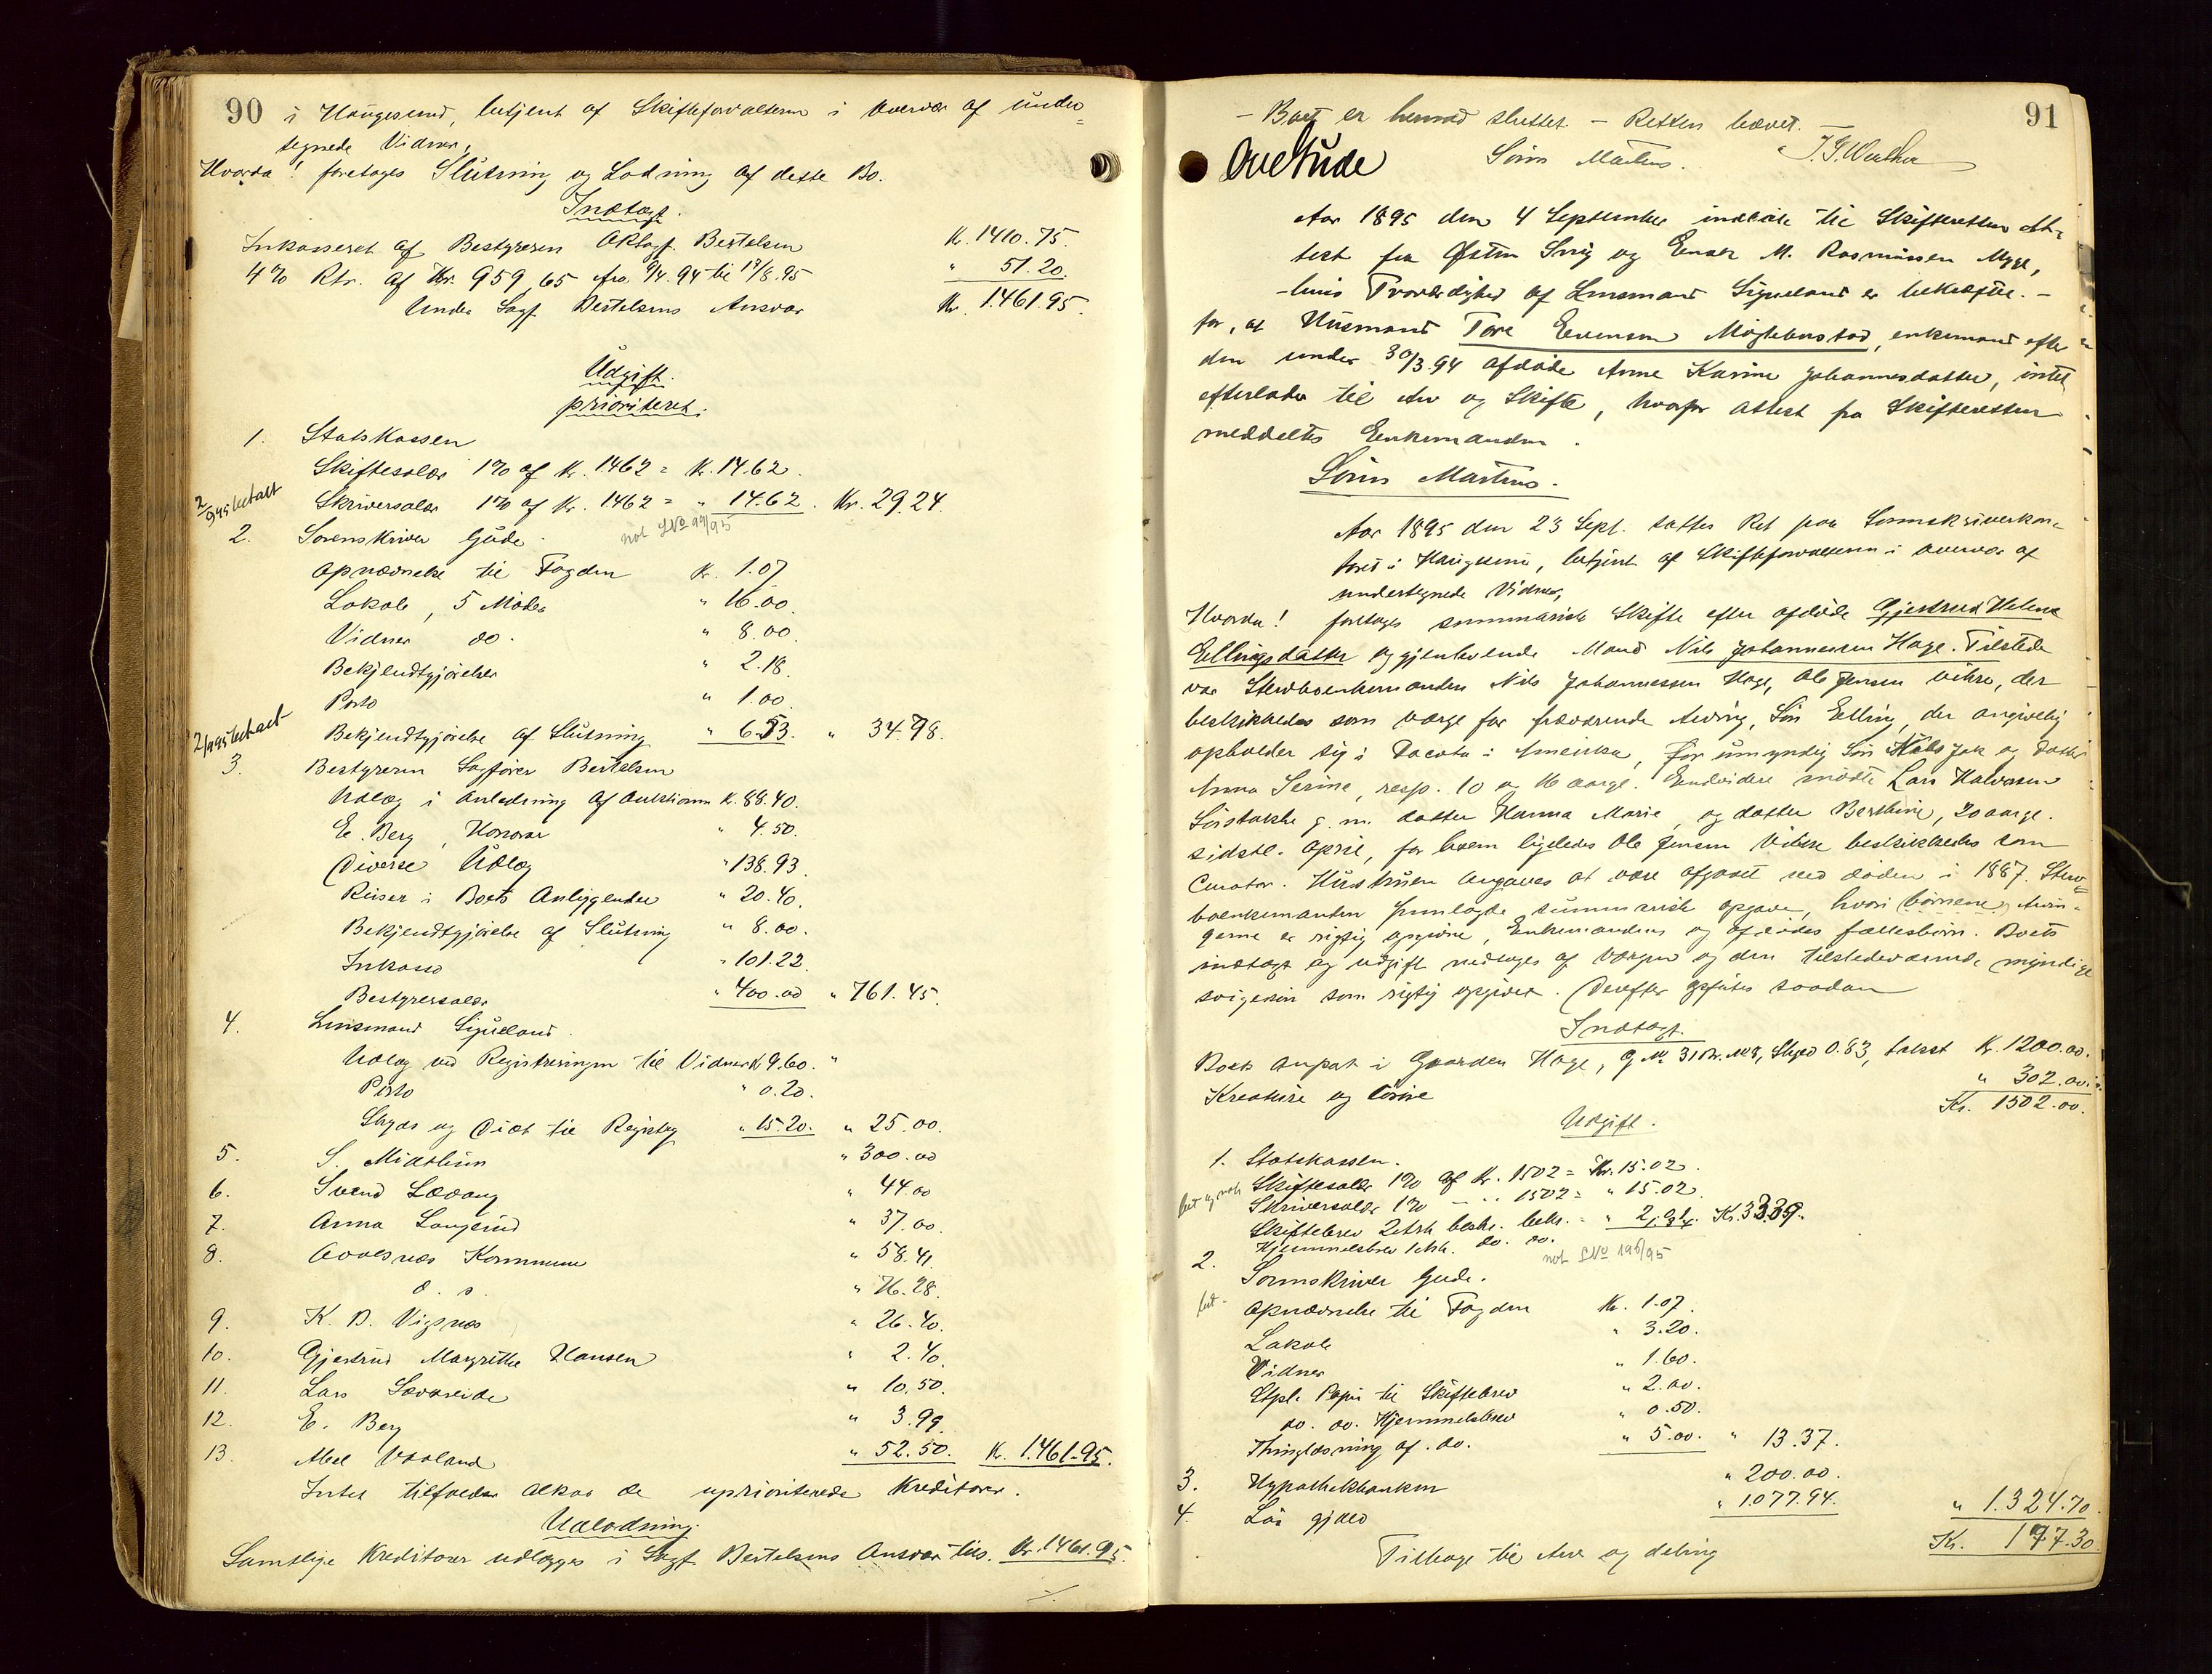 90
i Haugesund, betjent af Skifteforvalteren i Overvær af under-
tegnede Vidner,
Hvorda! foretages Slutning og Lodning af dette Bo.
Indtægt.
Inkasseret af Bestyreren Bertelsen Kr. 1410.75.
4% Rtr. af Kr. 959,65 fra 9/4.94 til 19/8.95 " 51.20.
Under Sagf. Bertelsens Ansvar Kr. 1.461.95.
Udgift.
prioriteret.
1. Statskassen
Skiftesalær 1% af Kr. 1462 = Kr. 14.62.
Skriversalær 1% af Kr. 1462 = " 14.62. Kr. 29.24.
2. Sorenskriver Gude.
Opnævnelse til Fogden Kr. 1.07
Lokale, 5 Møder " 16.00.
Vidner do. " 8.00.
Bekjendtgjørelser " 2.18.
Porto " 1.00.
Bekjendtgjørelse af Slutning " 6.53. " 34.78.
3. Bestyreren Sagfører Bertelsen
Udlæg i Anledning af Auktionen Kr. 88.40.
E. Berg, Honorar " 4.50.
Diverse Udlæg " 138.93.
Reiser i Boets Anliggender " 20.40.
Bekjendtgjørelse af Slutning " 8.00.
Inkasso " 101.22.
Bestyrersalær " 400.00 " 761.45.
4. Lensmand Siqueland.
Udlæg ved Registreringen til Vidner Kr 9.60. "
Porto " 0.20.
Skyds og Diæt til Registrg " 15.20. " 25.00.
5. S. Midtbun " 300.00
6. Svend " 44.00
7. Anna " 37.00.
8. Avalsnes Kommune " 58.41.
d. s. " 76.28.
9. K. D. Vigsnes " 26.40.
10. Gjertrud Margrethe Hansen " 2.40.
11. Lars Sævareide " 10.50.
12. E. Berg " 3.99.
13. Abel Vaaland " 52.50. Kr. 1.461.95.
Intet tilfalder altsaa de uprioriterede Kreditorer.
Udlodning.
Samtlige Kreditorer udlægges i Sagf. Bertelsens Ansvar tils. Kr. 1461.95.
91
- Boet er hermed sluttet. - Retten hævet. -
Sørin Martens.
Aar 1895 den 4 September indkom til Skifteretten At-
test fra Østen og Enok M. Rasmussen Myge,
- hvis Troværdighed af Lensmand Siqueland er bekræftet. -
for, at Husmand Tore Evensen, enkemand efter
den under 30/3.94 afdøde Anne Karine Johannesdatter, intet
efterlader til Arv og Skifte, hvorfor attest fra Skifteretten
meddeltes Enkemanden.
Sørin Martens.
Aar 1895 den 23 Sept. sattes Ret paa Sorenskriverkon-
toret i Haugesund, betjent af Skifteforvalteren i Overvær af
undertegnede Vidner,
Hvorda! foretages summarisk Skifte efter afdøde Gjertrud Helene
Ellingsdatter og gjenlevende Mand Nils Johannessen Hage. Tilstede
var Stervboenkemanden Nils Johannessen Hage, Ole Jensen Vikre, der
beskikkedes som Værge for fraværende Arving, Søn Elling, der angivelig
opholder sig i Dacota i Amerika, for umyndig Søn Nils Jak og Datter
Anna Serine, resp. 10 og 16 aarge. Endvidere mødte Lars Halvorsen
g. m. datter Hanna Marie, og datter Berthine, 20 aarge.
sidstl. April, for hvem ligeledes Ole Jensen Vikre beskikkedes som
Curator. Hustruen angaves at være afgaaet ved døden i 1887. Sterv-
boenkemanden fremlagde summarisk opgave, hvori børnene, Arvin-
gerne er rigtig opgivne, Enkemandens og afdødes fællesbørn. Boets
indtægt og udgift vedtoges af Værgen og den tilstedeværende myndige
svigersøn som rigtig opgivet. Derefter opføres saadan
Indtægt.
Boets anpart i Gaarden Hage, G. No 31 Br. No 8, Skyld 0.83, takst Kr. 1200.00.
Kreature og løsøre " 302.00.
Kr. 1502.00.
Udgift.
1. Statskassen.
Skiftesalær 1% af Kr. 1502 = Kr. 15.02.
Skriversalær 1% - " 1502 = " 15.02.
Skiftebrev 2 Ark beskr. bekr. = Kr. 33.39.
Hjemmelsbrev 1 Ark. do. do.
2. Sorenskriver Gude.
Opnævnelse til Fogden Kr. 1.07.
Lokale " 3.20.
Vidner " 1.60.
Stpl. Papir til Skiftebrev " 2.00.
do. do. Hjemmelsbrev " 0.50.
Thinglæsning af do. " 5.00. " 13.37.
3. Hypothekbanken " 200.00.
4. Løs gjæld " 1077.94. " 1.324.70.
Tilbage til Arv og deling Kr. 177.30.